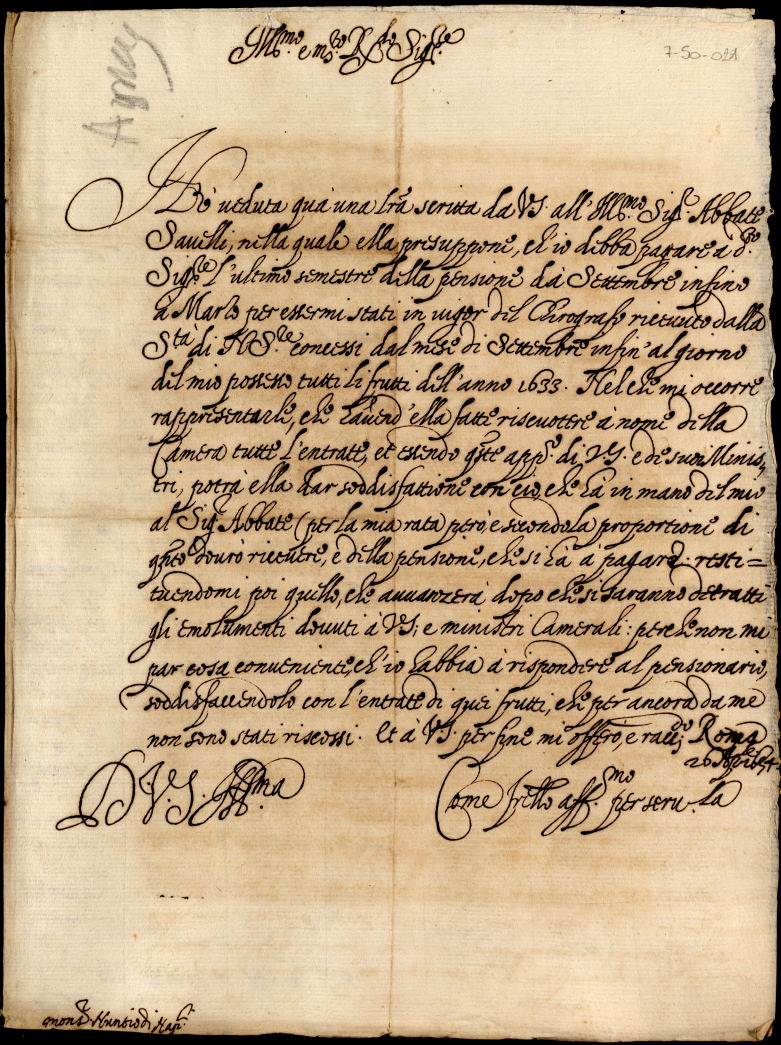 Ill.mo e m.to R.do Sig.re
7-50-021
Hò veduta quà una lr̃a scritta da VS. all'Ill.mo Sig.r Abbate
Savelli, nella quale ella presuppone, ch'io debba pagare a d.o
Sig.re l'ultimo semestre della pensione dà Settembre infino
a Marzo per essermi stati in vigor del Chirografo ricevuto dalla
S.tà di N.S.re concessi dal mese di Settembre infin'al giorno
del mio possesso tutti li frutti dell'anno 1633. Nel che mi occorre
rappresentarle, che havend'ella fatte riscuotere à nome della
Camera tutte l'entrate, et essendo q̃ste app.o di V.S. e de suoi Minis=
tri, potrà ella dar soddisfattione con ciò, che hà in mano del mio
al Sig.r Abbate (per la mia rata però, e secondo la proportione di
q̃nto dourò ricevere, e della pensione, che si hà à pagare) resti=
tuendomi poi quello, che avvanzerà dopo che si saranno detratti
gli emolumenti dovuti à V.S; e ministri Camerali: perche non mi
par cosa conveniente, ch'io habbia à rispondere al pensionario,
soddisfacendolo con l'entrate di quei frutti, che per ancora da me
non sono stati riscossi. Et à VS. per fine mi offero, e racc.do Roma
26 Ap.le 1634
D. V. S. Ill.ma
Come fr̃ello aff.mo per seru.la
Mons.r Nuntio di Nap.i